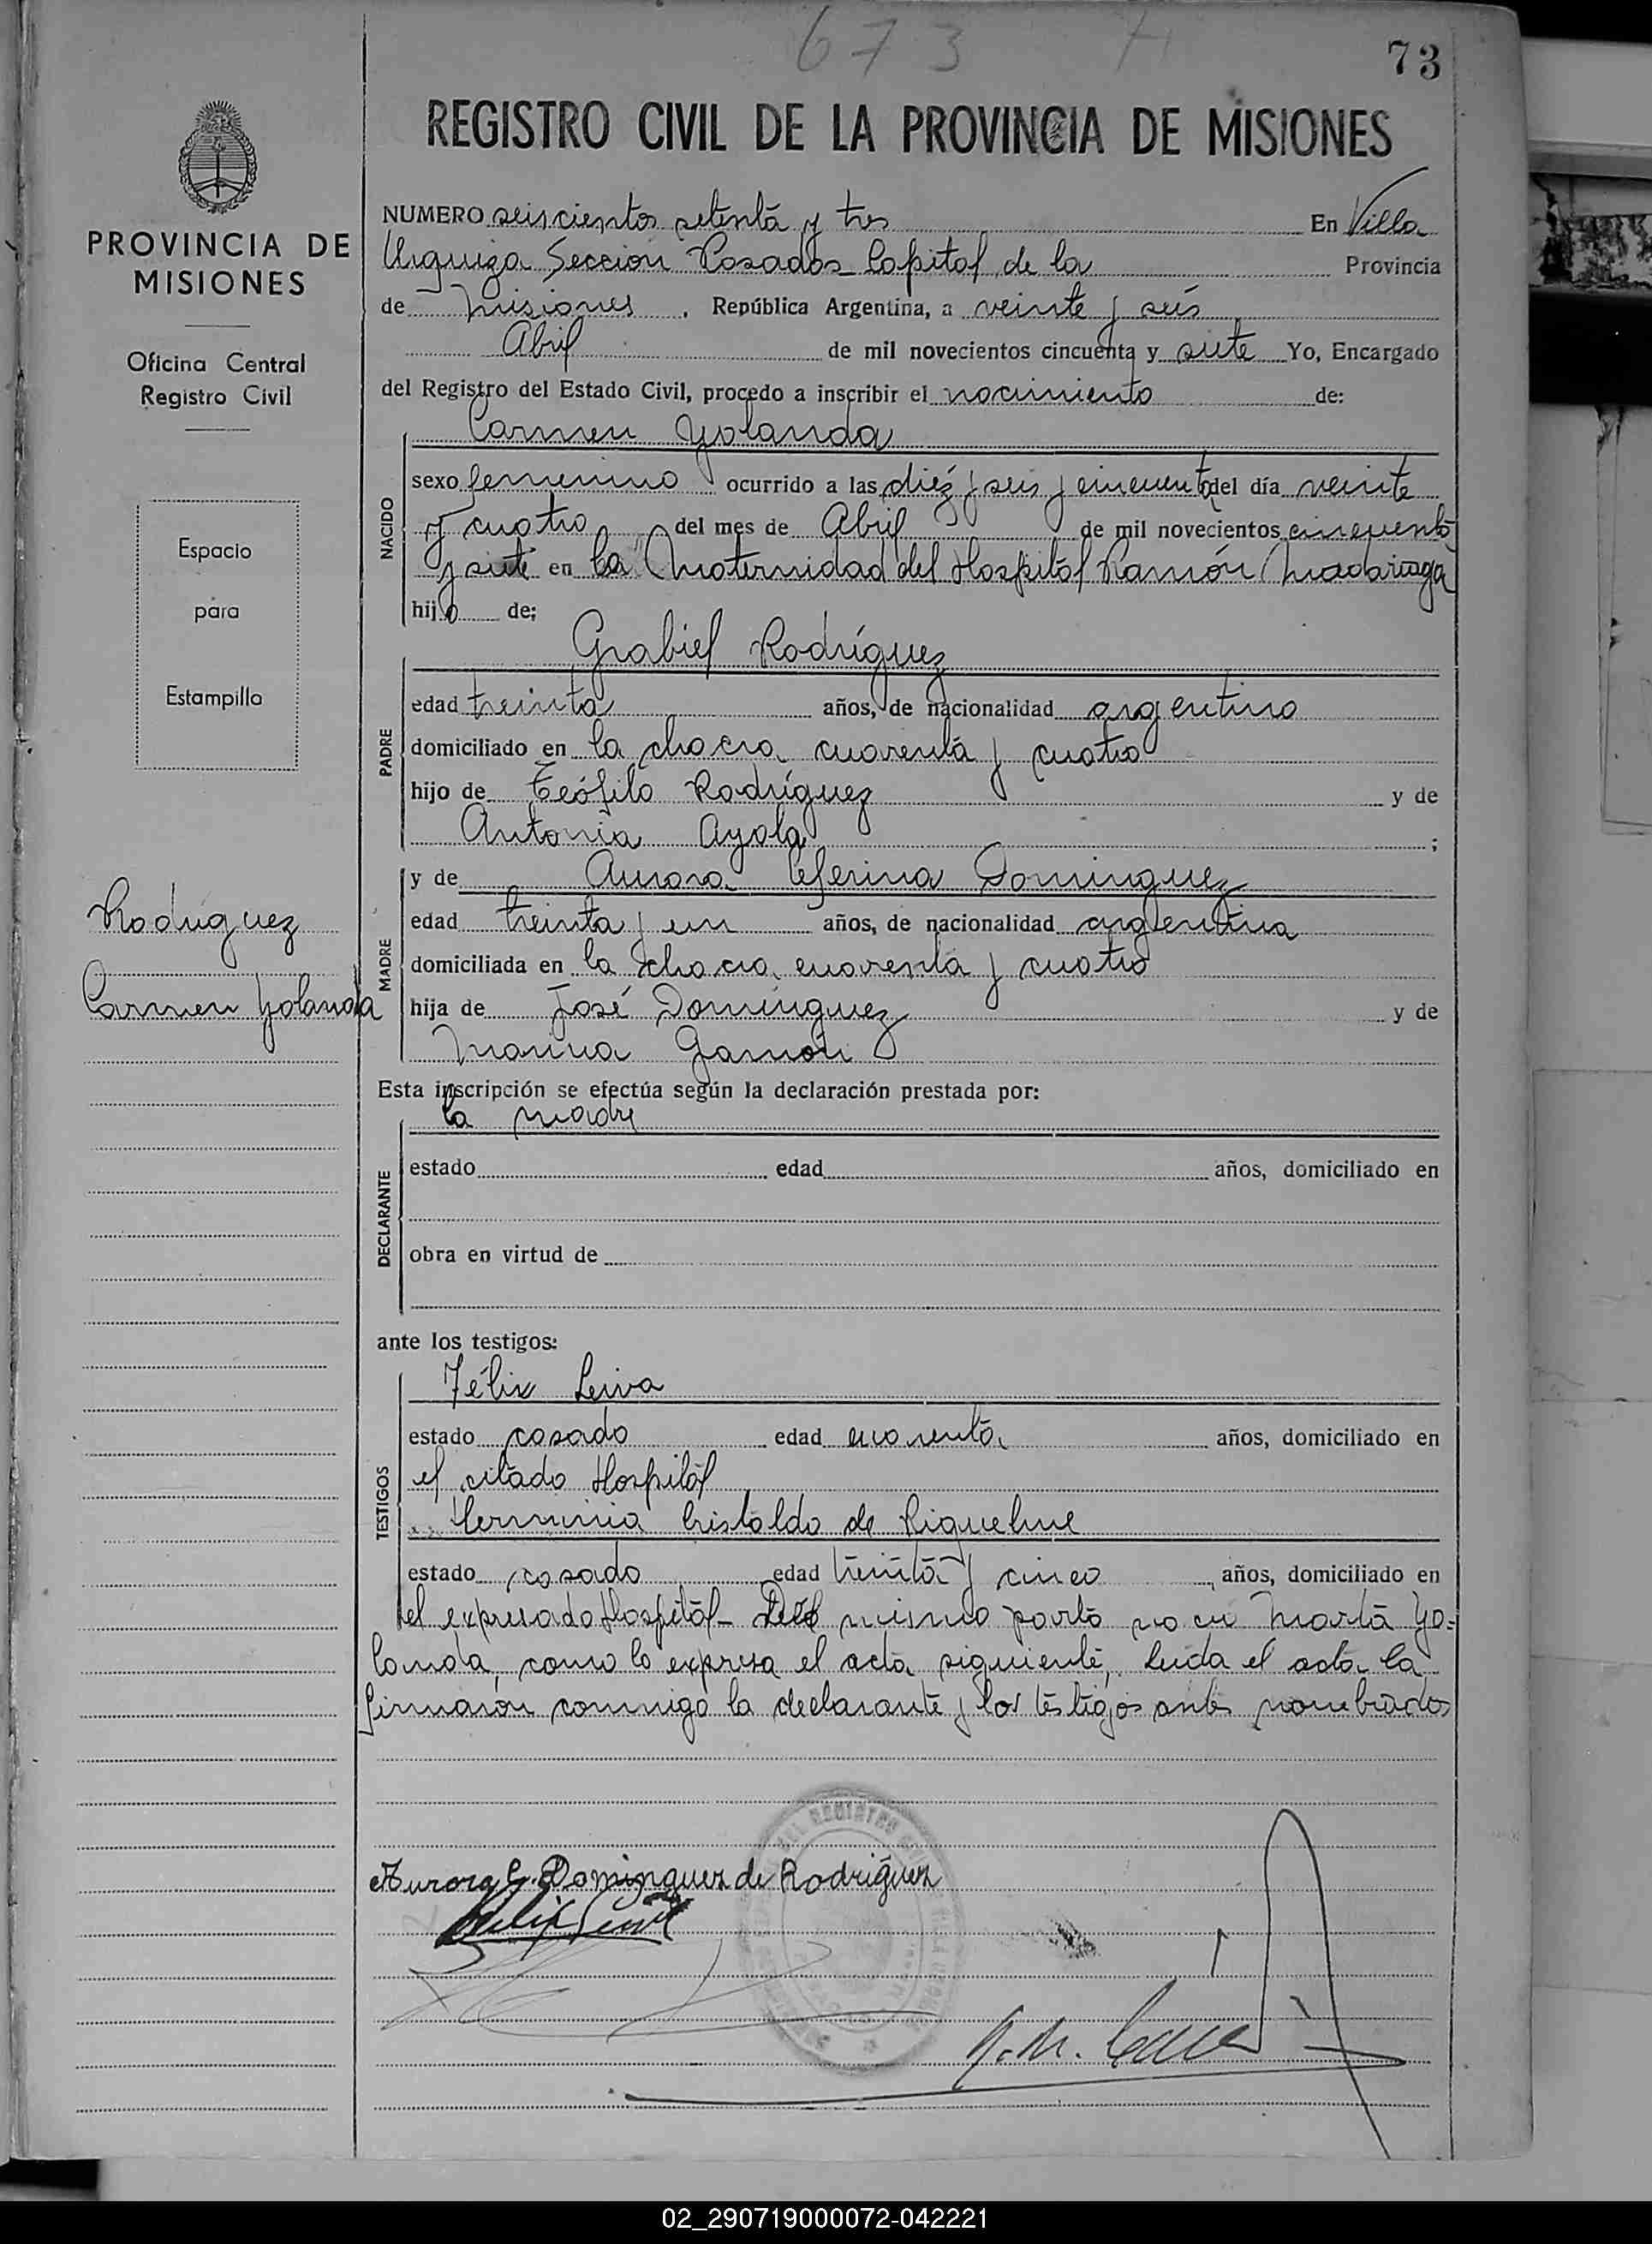 673
73
REGISTRO CIVIL DE LA PROVINCIA DE MISIONES
PROVINCIA DE
MISIONES
Oficina Central
Registro Civil
Espacio
para
Estampilla
Rodriguez
Carmen Yolanda
NUMERO seiscientos setenta y tres En Villa
Urquiza Sección Posadas Capital de la Provincia
de Misiones, República Argentina, a veinte y seis
Abril de mil novecientos cincuenta y siete Yo, Encargado
del Registro del Estado Civil, procedo a inscribir el nacimiento de:
Carmen Yolanda
NACIDO
sexo femenino ocurrido a las diéz y seis y cincuenta del día veinte
y cuatro del mes de Abril de mil novecientos cincuenta
y siete en la Maternidad del Hospital Ramón Madariaga
hija de;
Grabiel Rodríguez
PADRE
edad treinta años, de nacionalidad argentino
domiciliado en la chacra cuarenta y cuatro
hijo de Teófilo Rodríguez y de
Antonia Ayala ;
y de Aurora Ceferina Dominguez
MADRE
edad treinta y un años, de nacionalidad argentina
domiciliada en la chacra cuarenta y cuatro
hija de José Domínguez y de
Marina
Esta inscripción se efectúa según la declaración prestada por:
la madre
DECLARANTE
estado edad años, domiciliado en
obra en virtud de
ante los testigos:
Félix Leiva
TESTIGOS
estado casado edad cuarenta años, domiciliado en
el citado Hospital
Herminia Cristaldo de Riquelme
estado casado edad treinta y cinco años, domiciliado en
el expresado Hospital - Del mismo parto nacio Marta Yo=
landa, como lo expresa el acta siguiente, Leida el acta la
firmaron conmigo la declarante y los testigos antes nombrados
Aurora C. Dominguez de Rodriguez
Felix Leiva
02_290719000072-042221